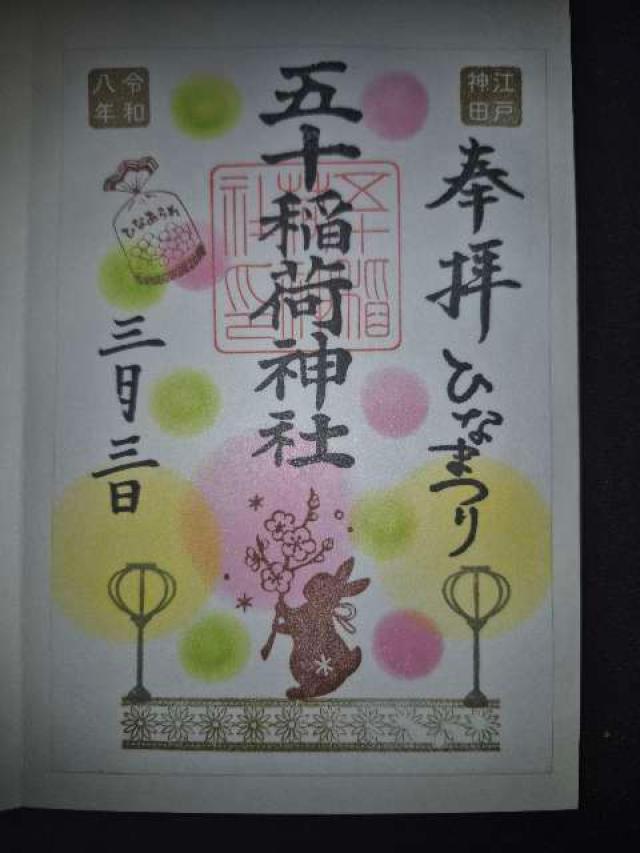 江戸
神田
奉拝 ひなまつり
五十稲荷神社
令和
八年
ひなあられ
三月三日